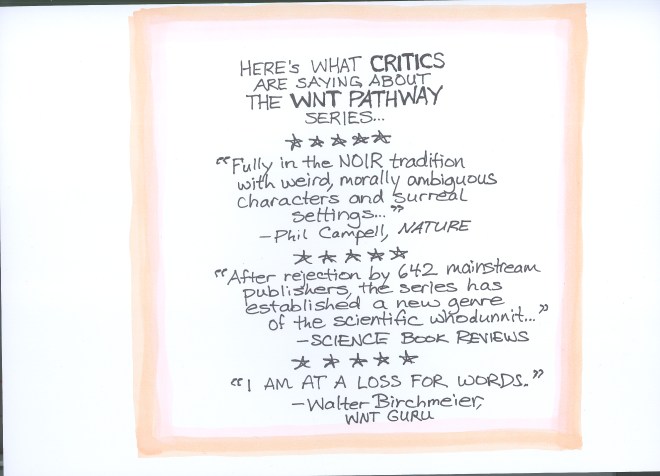 HERE'S WHAT CRITICS
ARE SAYING ABOUT
THE WNT PATHWAY
SERIES...
★★★★★
"Fully in the NOIR tradition
with weird, morally ambiguous
characters and surreal
settings..."
-Phil Campell, NATURE
★★★★★
"After rejection by 642 mainstream
publishers, the series has
established a new genre
of the scientific whodunnit..."
-SCIENCE BOOK REVIEWS
★★★★★
"I AM AT A LOSS FOR WORDS."
-Walter Birchmeier,
WNT GURU